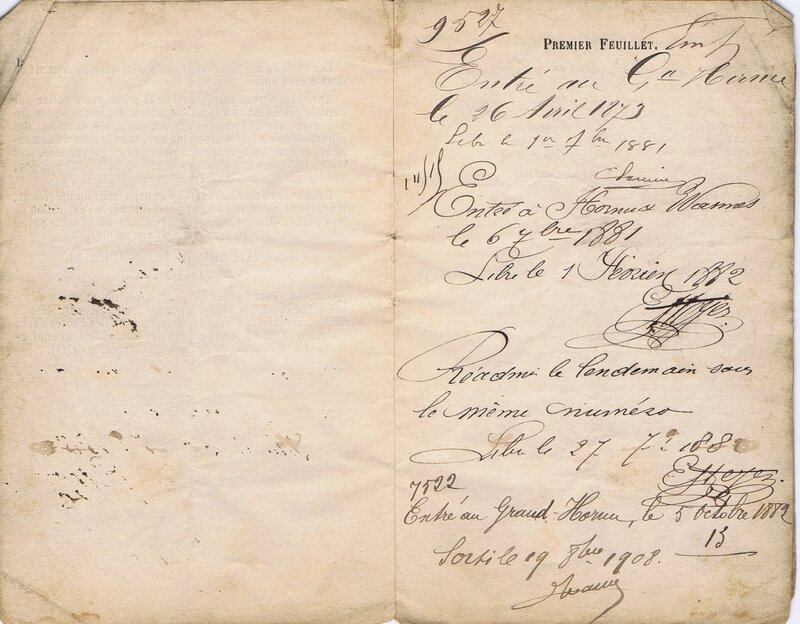 9527
PREMIER FEUILLET.
Entré au Gd Hornu
le 26 Avril 1873
Libre le 1er 7bre 1881
Entré à Hornu & Wasmes
le 6 7bre 1881
Libre le 1 Février 1882
Réadmis le lendemain sous
le même numéro
Libre le 27 7bre 1882
7522
Entré au Grand-Hornu, le 5 Octobre 1882
13
Sorti le 19 8bre 1908.